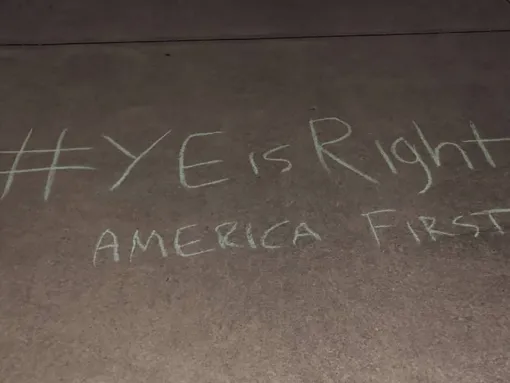 #YEisRight
AMERICA FIRST